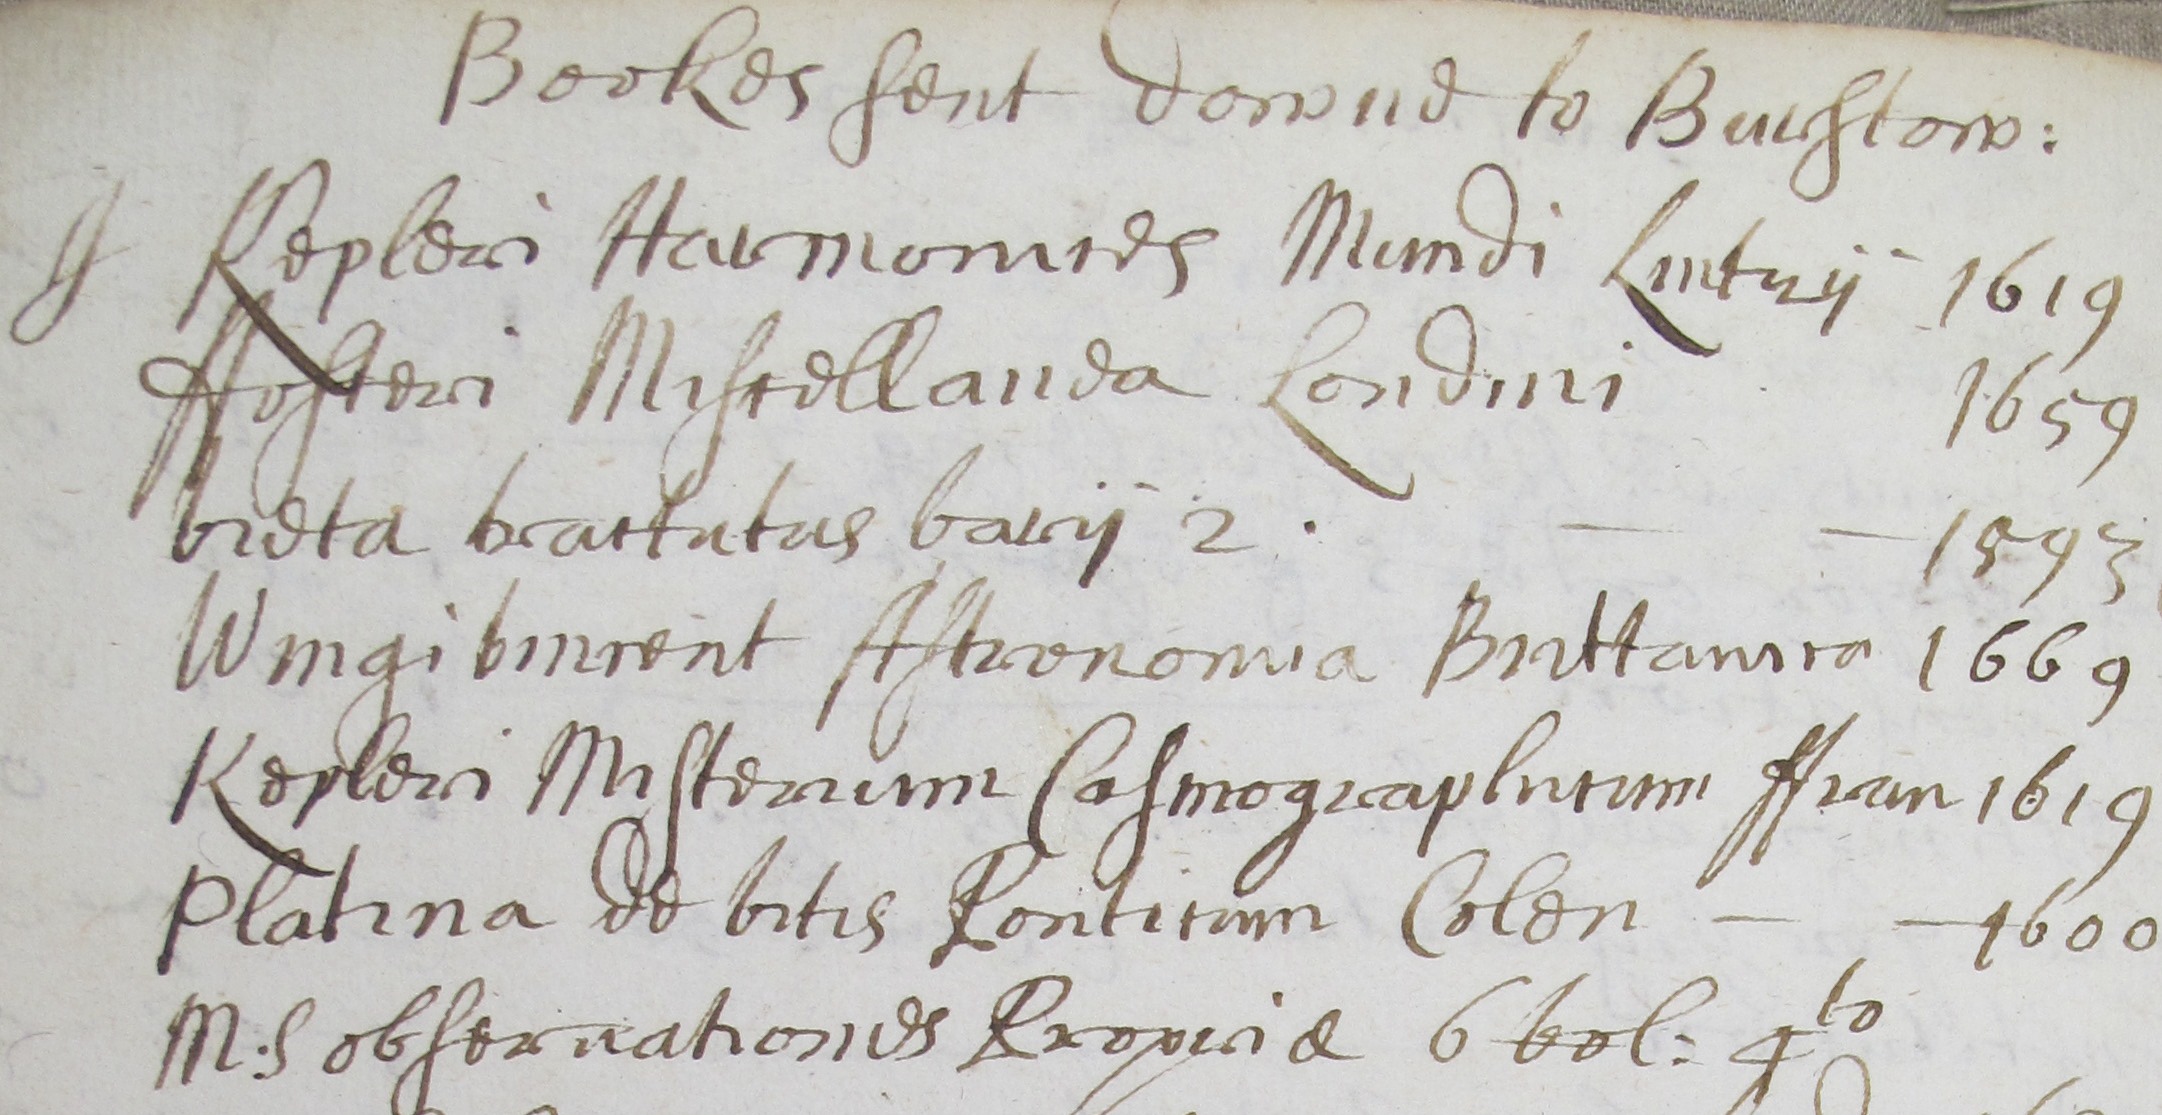 Bookes sent downe to Burstow:
Kepleri Harmonices Mundi Lintzij 1619
ffosteri Miscellanea Londini 1659
vieta tractatus varij 2. — — 1593
Wingi vincent Astronomia Brittanica 1669
Kepleri Misterium Cosmographicum ffran 1619
Platina de vitis Ponticum Colon — — 1600
M:S observationes Propriæ 6 vol: 4to